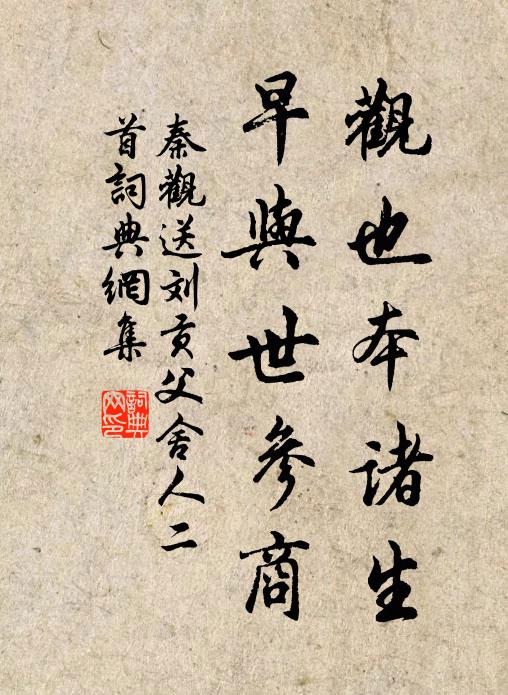 觀也本諸生
早與世參商
秦觀送刘貢父舍人二
首詞典網集
詞典
网印